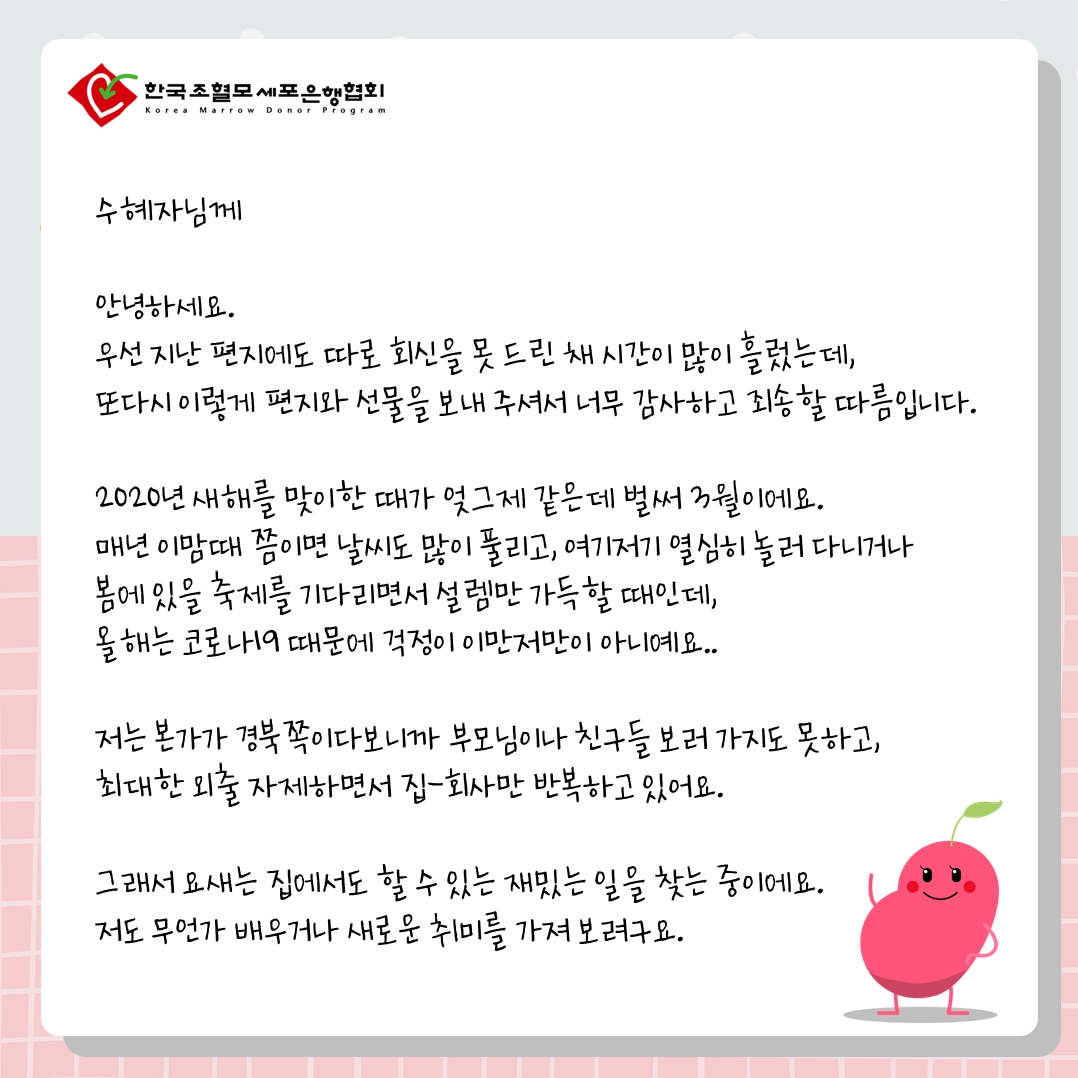 한국조혈모세포은행협회
Korea Marrow Donor Program
수혜자님께
안녕하세요.
우선 지난 편지에도 따로 회신을 못 드린 채 시간이 많이 흘렀는데,
또다시 이렇게 편지와 선물을 보내 주셔서 너무 감사하고 죄송할 따름입니다.
2020년 새해를 맞이한 때가 엊그제 같은데 벌써 3월이에요.
매년 이맘때 쯤이면 날씨도 많이 풀리고, 여기저기 열심히 놀러 다니거나
봄에 있을 축제를 기다리면서 설렘만 가득할 때인데,
올해는 코로나19 때문에 걱정이 이만저만이 아니예요..
저는 본가가 경북쪽이다보니까 부모님이나 친구들 보러 가지도 못하고,
최대한 외출 자제하면서 집-회사만 반복하고 있어요.
그래서 요새는 집에서도 할 수 있는 재밌는 일을 찾는 중이에요.
저도 무언가 배우거나 새로운 취미를 가져 보려구요.